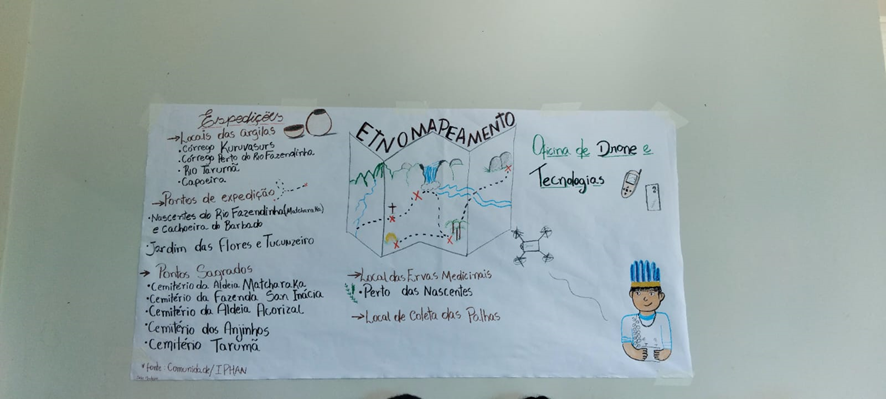 Expedições
→ Locais das argilas
• Córrego Kuruvasurs
• Córrego Perto do Rio Fazendinha
• Rio Tarumã
• Capoeira
→ Pontos de expedição
• Nascentes do Rio Fazendinha (Matcharaka)
e Cachoeira do Barbado
• Jardim das Flores e Tucunzeiro
→ Pontos Sagrados
• Cemitério da Aldeia Matcharaka
• Cemitério da Fazenda San Inácia
• Cemitério da Aldeia Acorizal
• Cemitério dos Anjinhos
• Cemitério Tarumã
* fonte Comunidade/IPHAN
ETNOMAPEAMENTO
→ Local das Ervas Medicinais
• Perto das Nascentes
→ Local de Coleta das Palhas
Oficina de Drone e
Tecnologias